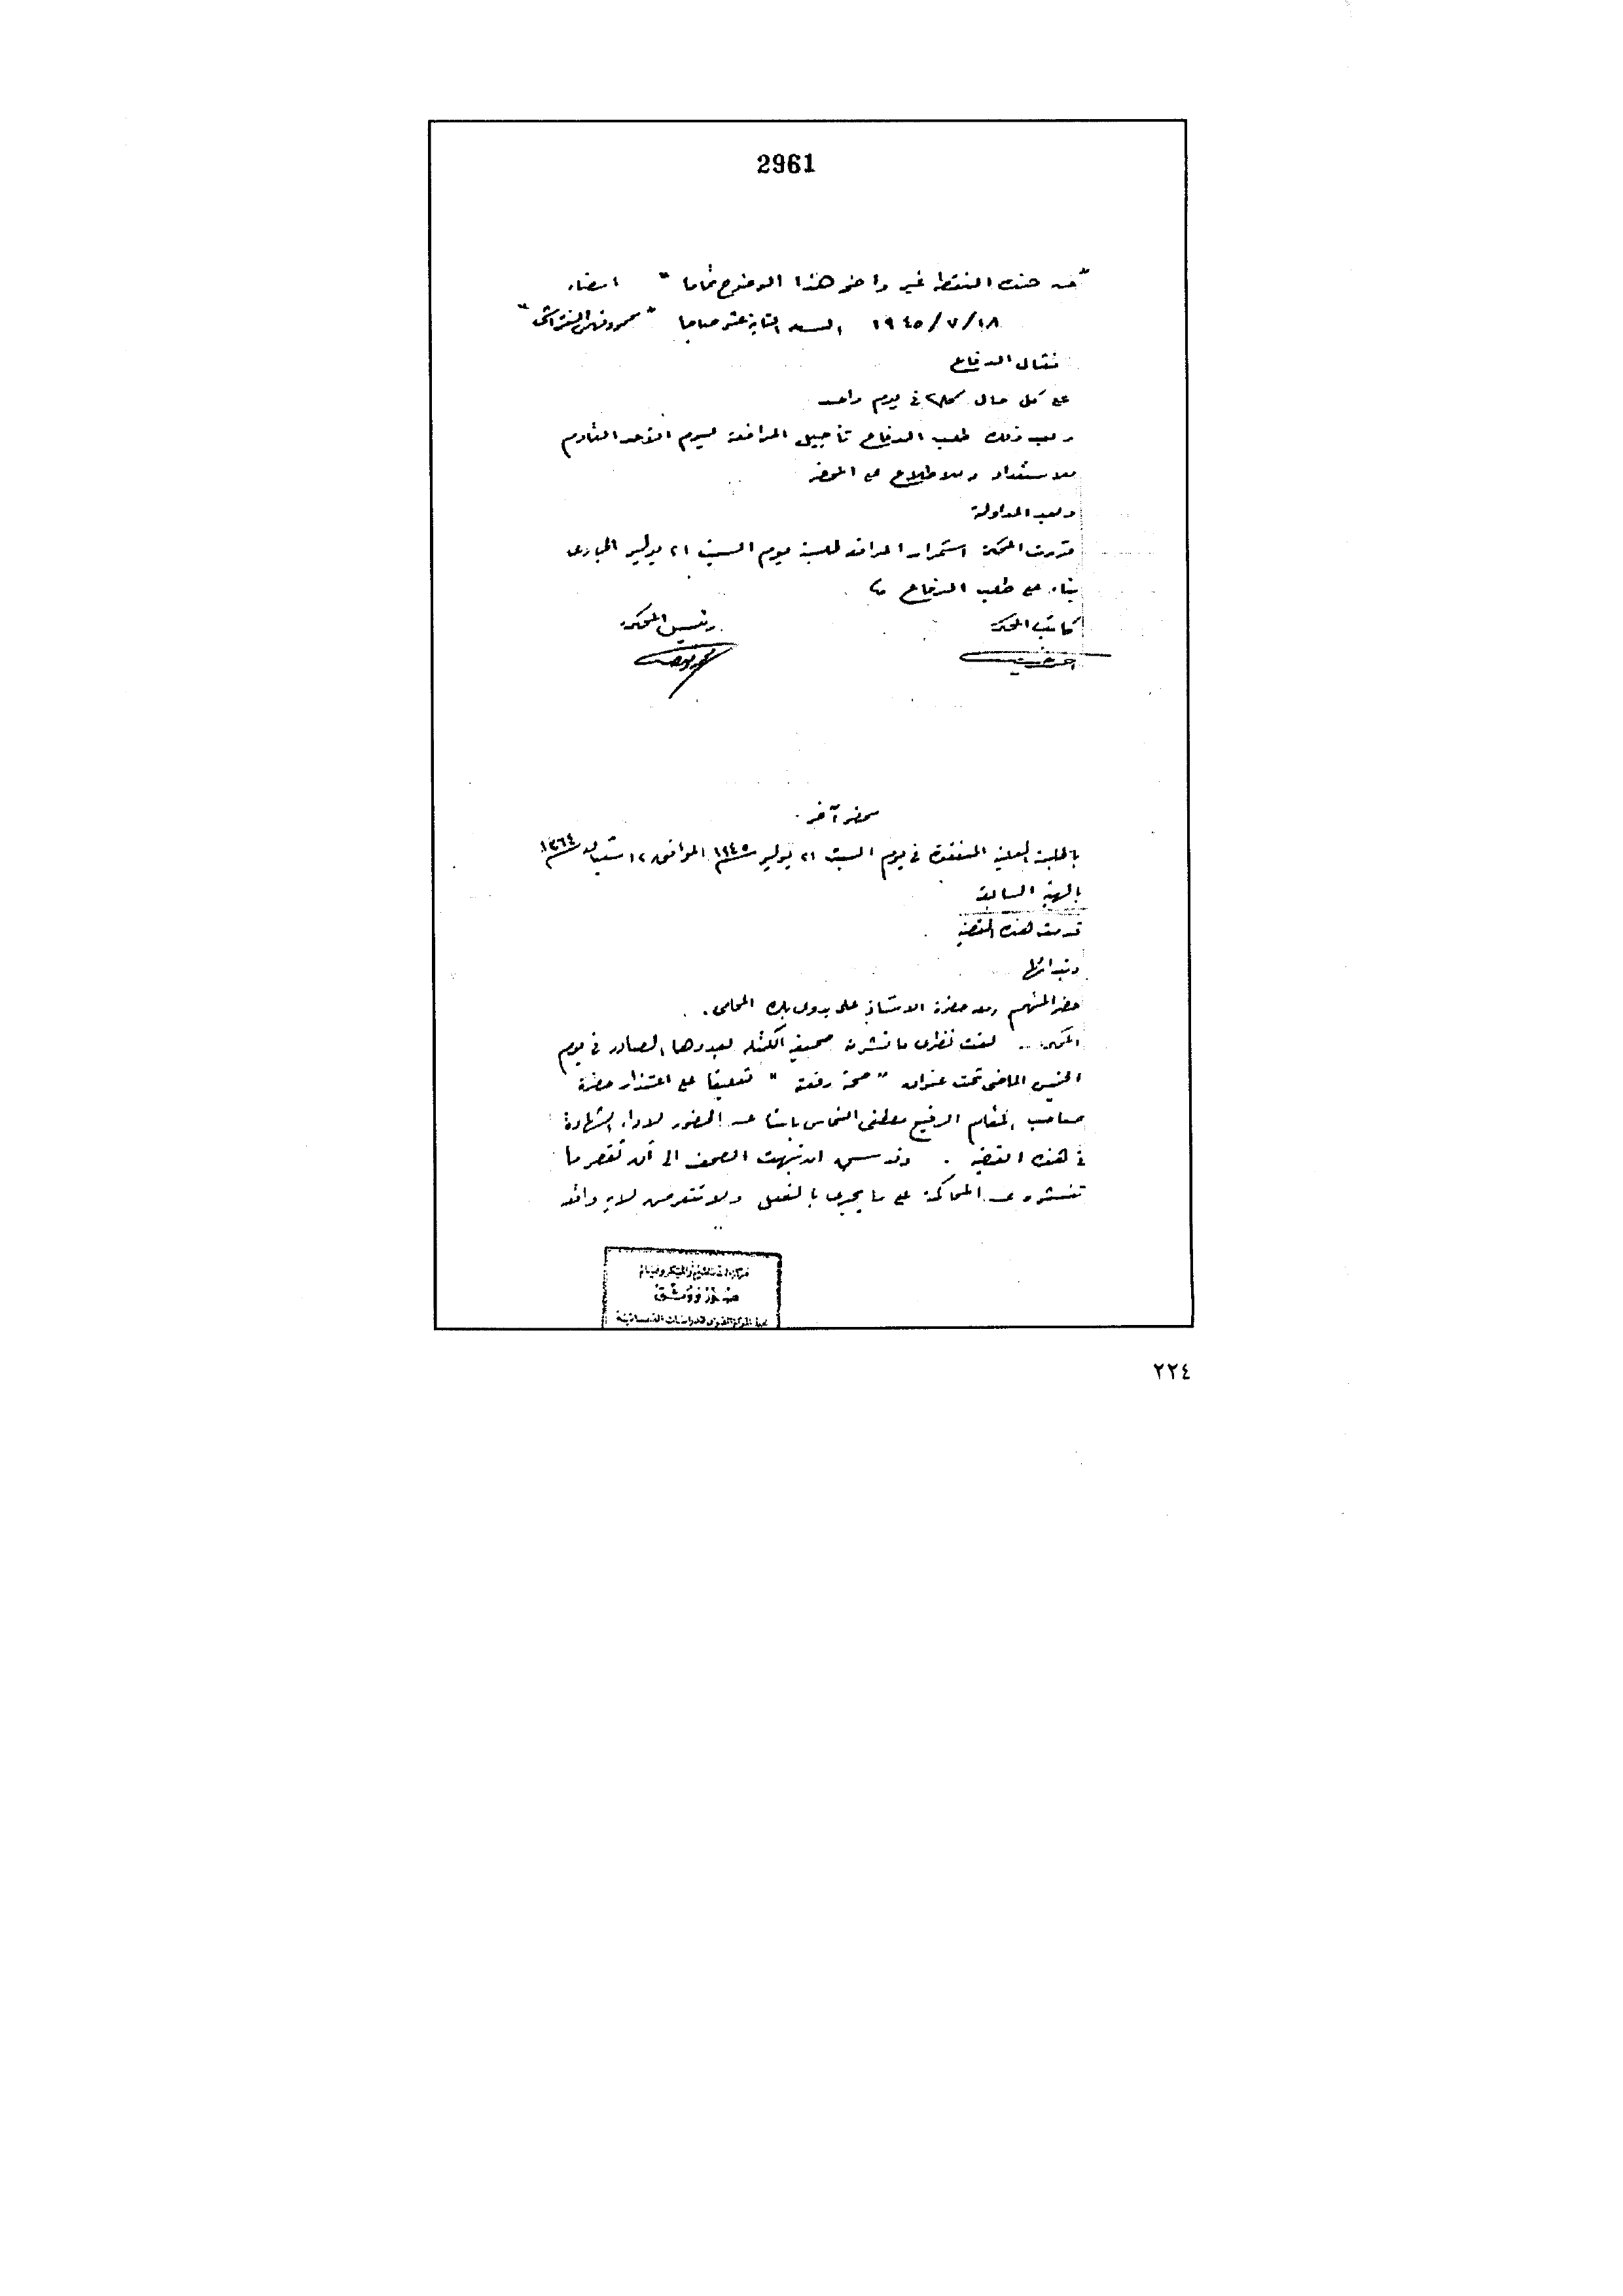 2961
"عن هذه النقطة غير واضح هذا الوضوح تماما" امضاء
١٩٤٥/٧/١٨ الساعة الثانية عشر صباحا "محمود فهمى النقراشى"
فقال الدفاع
على كل حال فى يوم واحد
وبعد ذلك طلب الدفاع تأجيل المرافعة ليوم الاحد القادم
للاستعداد وللاطلاع على المحضر
وبعد المداولة
قررت المحكمة استمرار المرافعة لجلسة يوم السبت ٢١ يوليو الجارى
بناء على طلب الدفاع
كاتب المحكمة رئيس المحكمة
محضر آخر.
بالجلسة العلنية المنعقدة فى يوم السبت ٢١ يوليو سنة ١٩٤٥ الموافق ١٢ شعبان سنة ١٣٦٤
بالهيئة السابقة
قدمت هذه القضية
وبندائها
حضر المتهم ومعه حضرة الاستاذ على بدوى بك المحامى.
المحكمة .. لفت نظرى ما نشرته صحيفة الكتلة بعددها الصادر فى يوم
الخميس الماضى تحت عنوان "صحة رفعته" تعليقا على اعتذار حضرة
صاحب المقام الرفيع مصطفى النحاس باشا عن الحضور لاداء الشهادة
فى هذه القضية. وقد سبق ان نبهت الصحف الى أن تقصر ما
تنشره عن المحاكمة على ما يجرى بالفعل ولا تتعرض لاية واقعة
٢٢٤